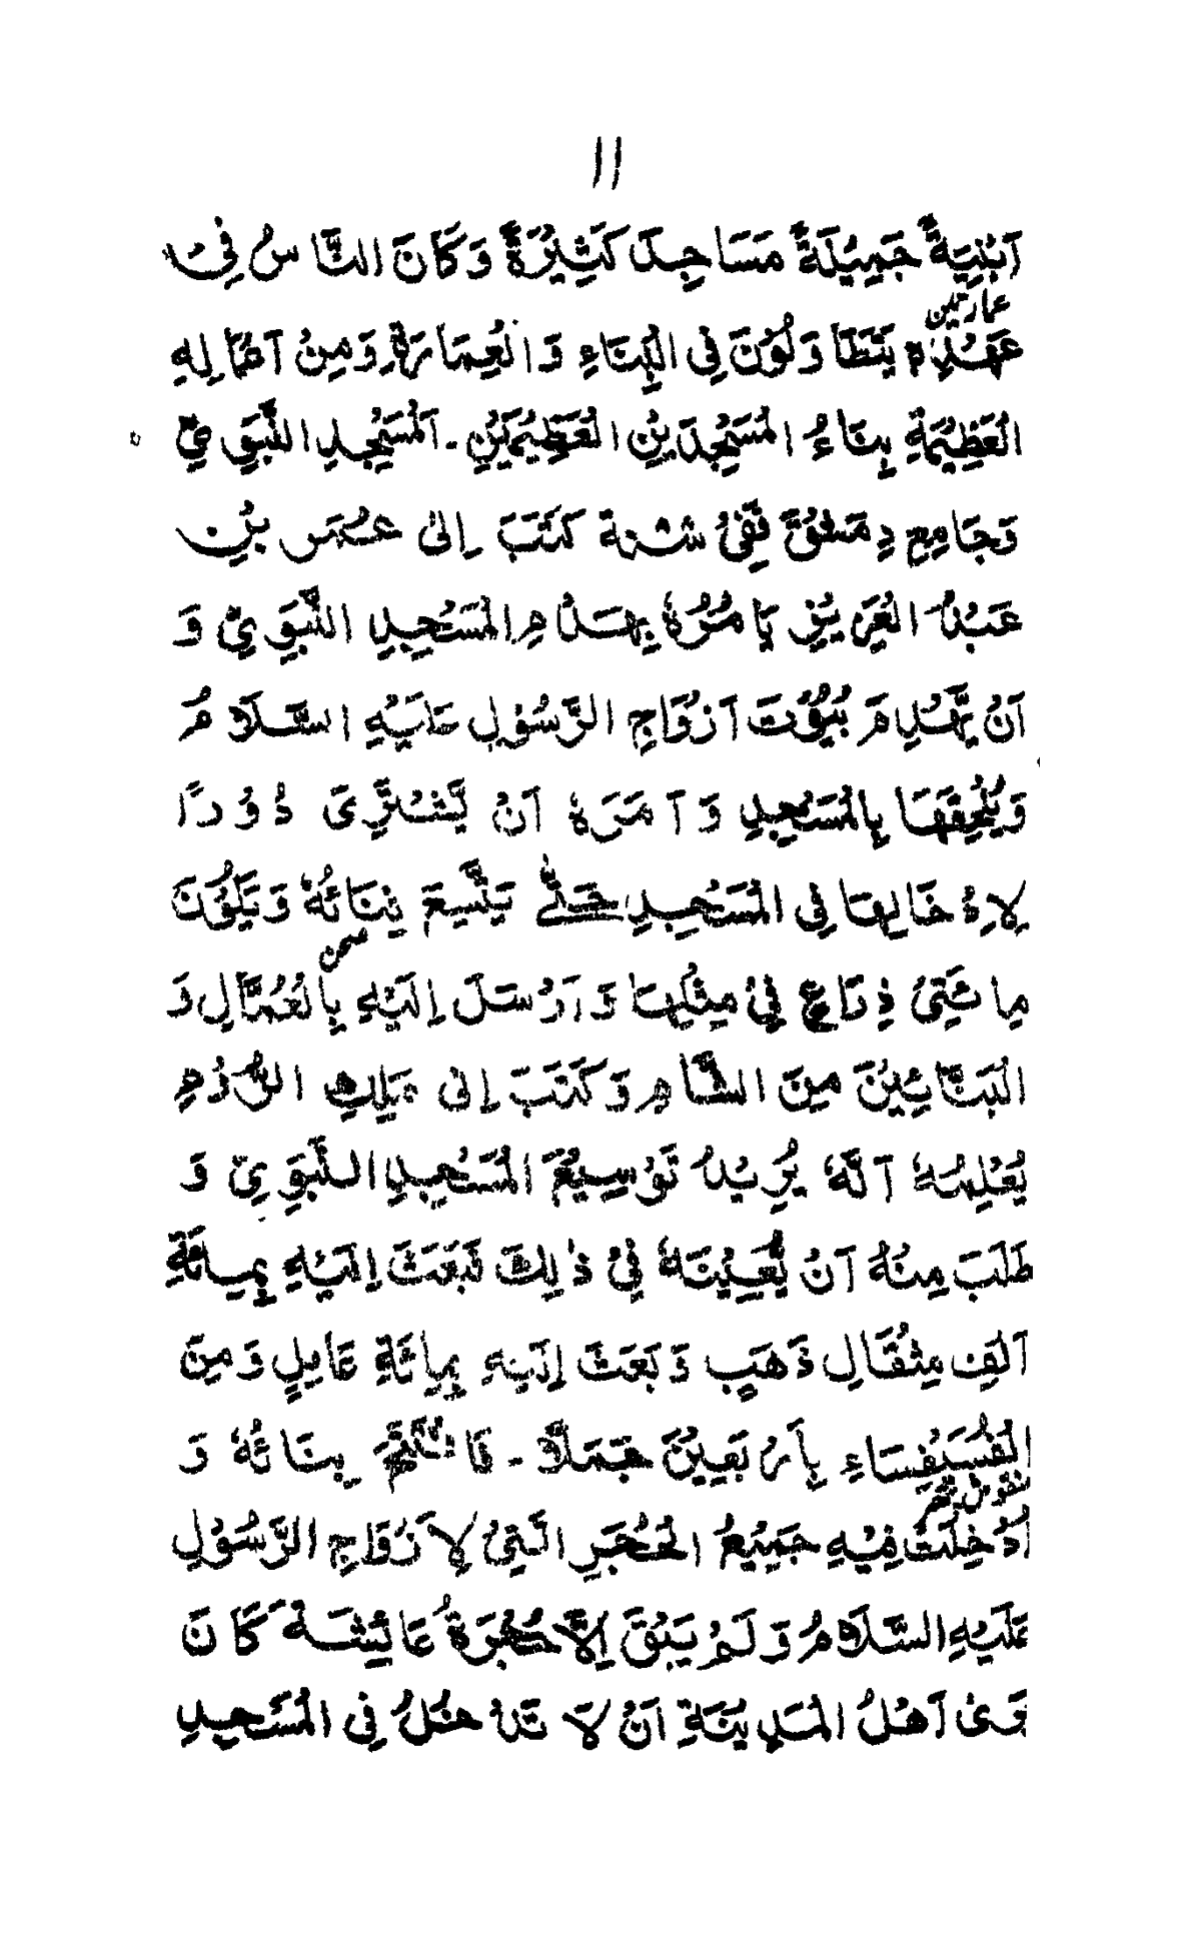 ١١
اَبْنِيَةً جَمِيْلَةً مَسَاجِدَ كَثِيْرَةً وَكَانَ النَّاسُ فِيْ
عمارتين
عَهْدِهٖ يَتَطَاوَلُوْنَ فِي الْبِنَاءِ وَالْعِمَارَةِ وَمِنْ اَعْمَالِهِ
الْعَظِيْمَةِ بِنَاءُ الْمَسْجِدَيْنِ الْعَظِيْمَيْنِ - اَلْمَسْجِدِ النَّبَوِيِّ
وَجَامِعِ دِمَشْقَ فَفِيْ سنة كَتَبَ اِلىٰ عُمَرَ بْنِ
عَبْدِ الْعَزِيْزِ يَامُرُهٗ بِهَدْمِ الْمَسْجِدِ النَّبَوِيِّ وَ
اَنْ يَّهْدِمَ بُيُوْتَ اَزْوَاجِ الرَّسُوْلِ عَلَيْهِ السَّلَامُ
وَيُلْحِقَهَا بِالْمَسْجِدِ وَ اَمَرَهٗ اَنْ يَّشْتَرِيَ دُوْرًا
لِاِدْخَالِهَا فِي الْمَسْجِدِ حَتّٰى يَتَّسِعَ بِنَائُهٗ وَيَكُوْنَ
صحن
مِائَتَيْ ذِرَاعٍ فِيْ مِثْلِهَا وَ اَرْسَلَ اِلَيْهِ بِالْعُمَّالِ وَ
الْبَنَّائِيْنَ مِنَ الشَّامِ وَكَتَبَ اِلىٰ مَلِكِ الرُّوْمِ
يُعْلِمُهٗ اَنَّهٗ يُرِيْدُ تَوْسِيْعَ الْمَسْجِدِ النَّبَوِيِّ وَ
طَلَبَ مِنْهُ اَنْ يُّعِيْنَهٗ فِيْ ذٰلِكَ فَبَعَثَ اِلَيْهِ بِمِائَةِ
اَلْفِ مِثْقَالِ ذَهَبٍ وَبَعَثَ اِلَيْهِ بِمِائَةِ عَامِلٍ وَمِنَ
الْفُسَيْفِسَاءِ بِاَرْبَعِيْنَ جَمَلًا - بِنَائُهٗ وَ
اُدْخِلَتْ فِيْهِ جَمِيْعُ الْحُجَرِ الَّتِيْ لِاَزْوَاجِ الرَّسُوْلِ
عَلَيْهِ السَّلَامُ وَلَمْ يَبْقَ اِلَّا حُجْرَةُ عَائِشَةَ كَانَ
اَهْلُ الْمَدِيْنَةِ اَنْ لَا تَدْخُلُ فِي الْمَسْجِدِ